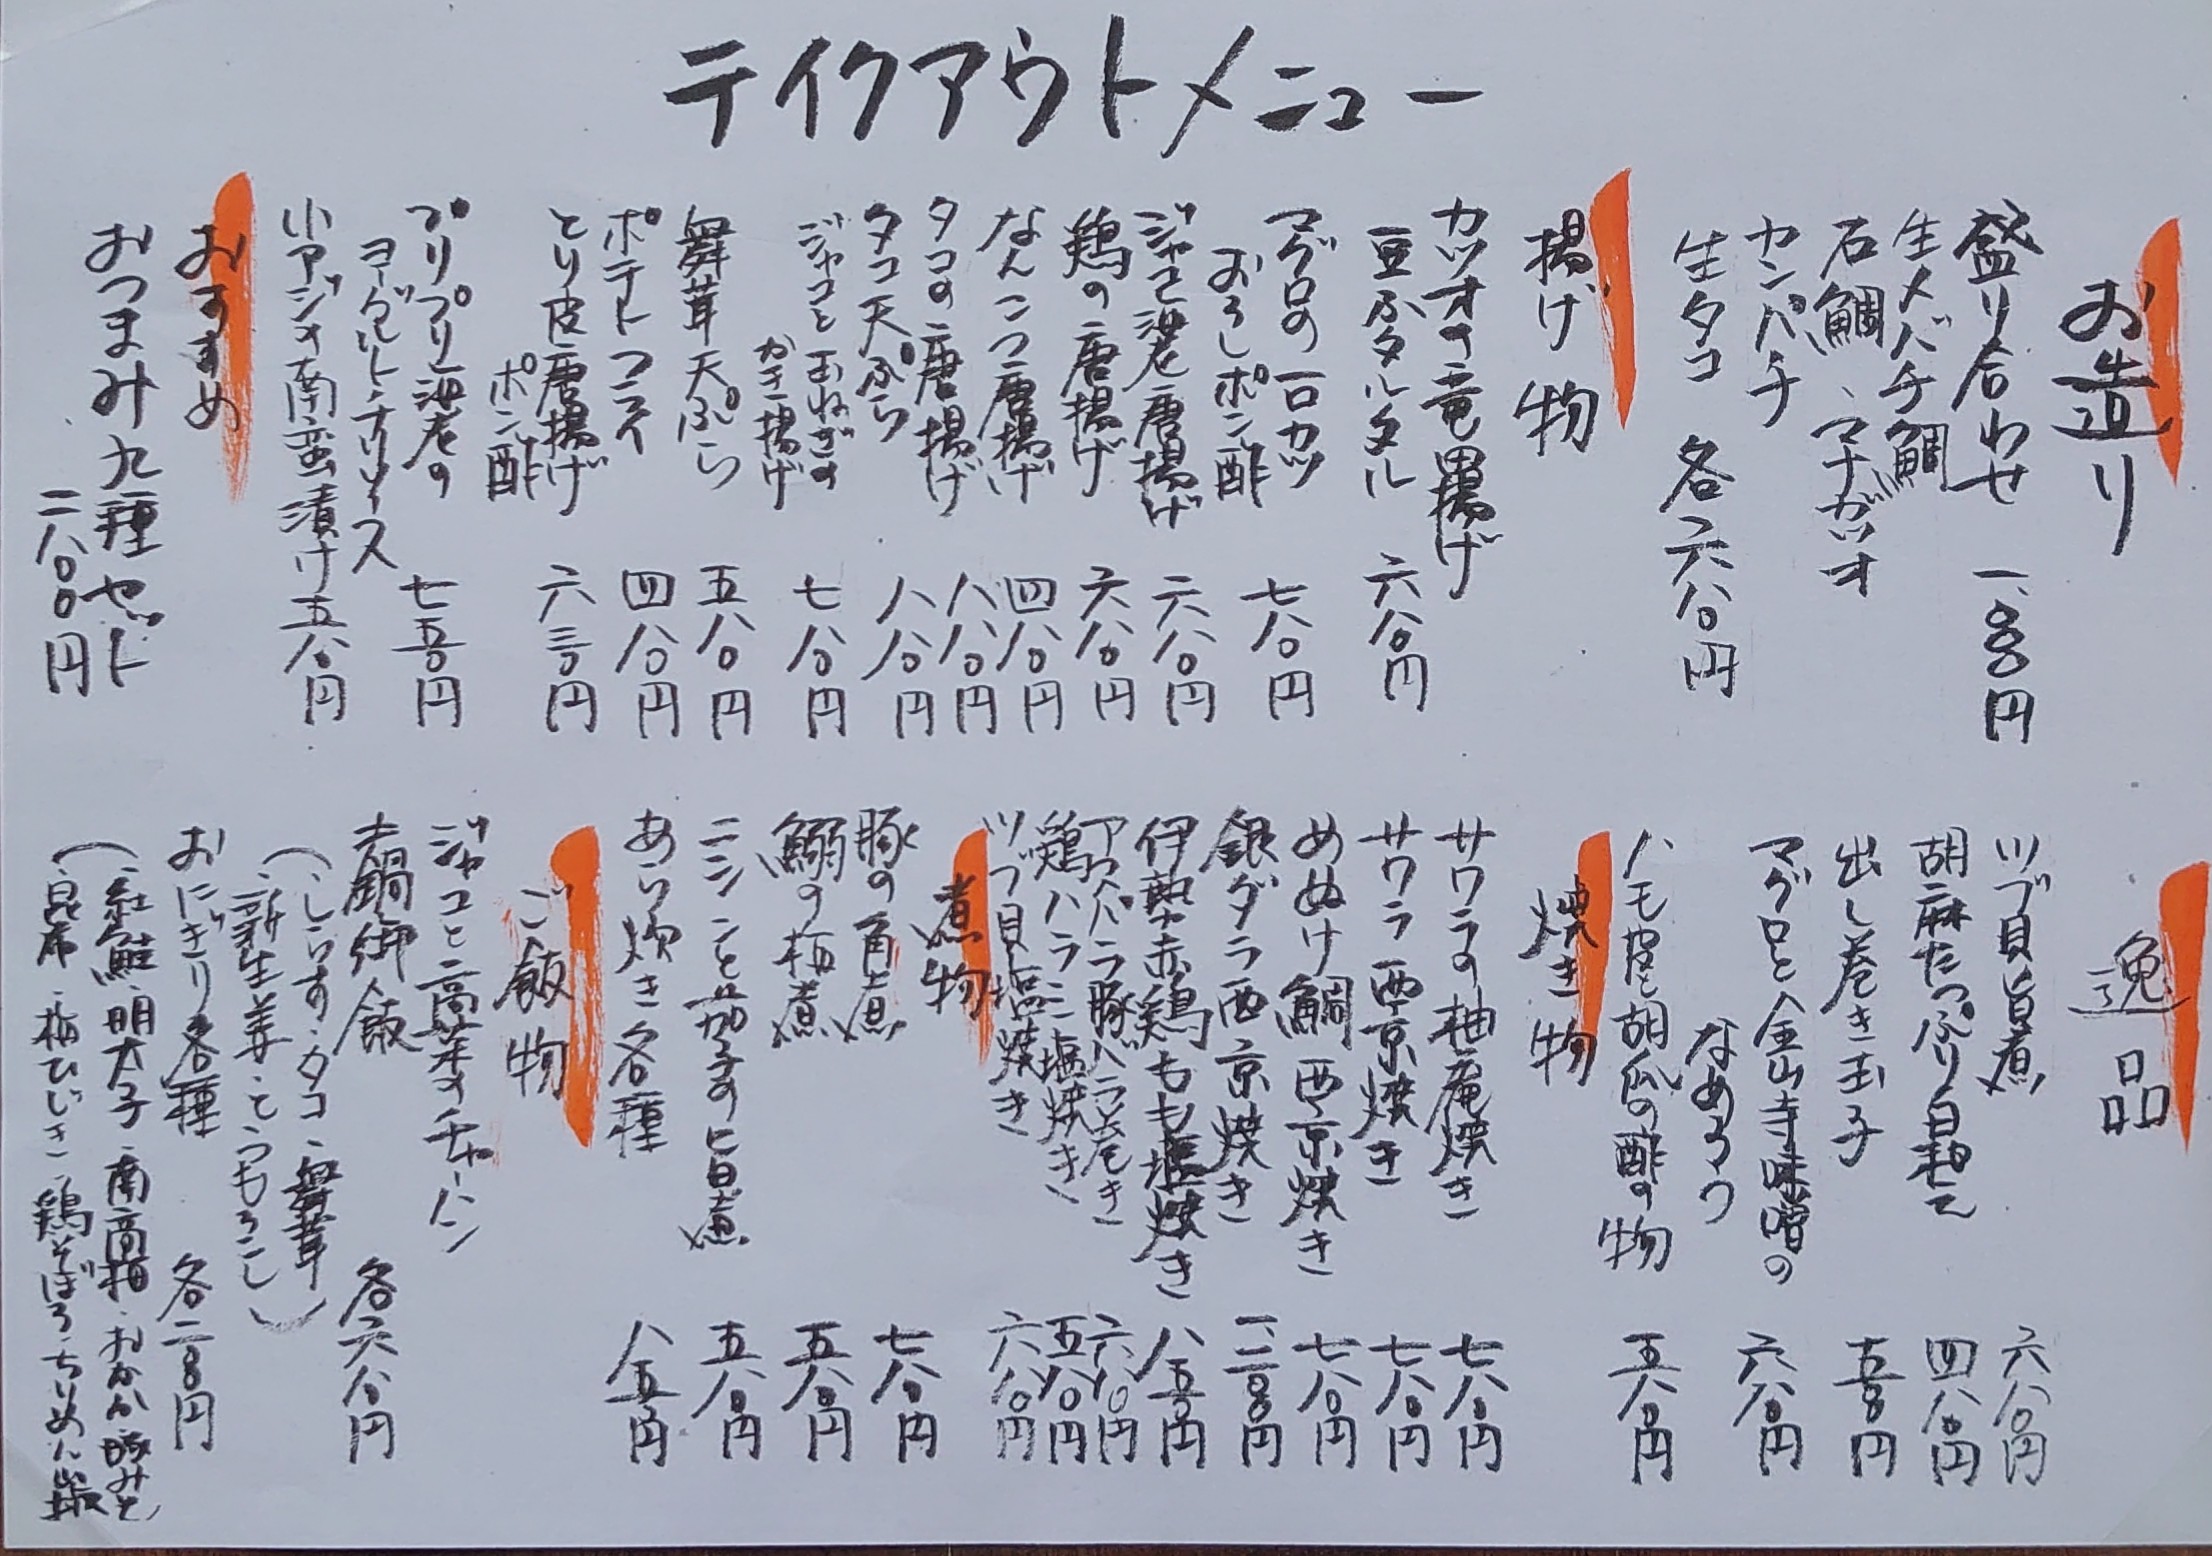 テイクアウトメニュー
お造り
盛り合わせ 一、八〇〇円
生メバチ鯛
石鯛、マナガツオ
カンパチ
生タコ 各六八〇円
揚げ物
カツオの竜田揚げ
豆ふタルタル 六八〇円
マグロの一口カツ
おろしポン酢 七八〇円
ジャコ港唐揚げ 六八〇円
鶏の唐揚げ 六八〇円
なんこつ唐揚げ 四八〇円
タコの唐揚げ 八八〇円
タコ天ぷら 八八〇円
ジャコと玉ねぎの
かき揚げ 七八〇円
舞茸天ぷら 五八〇円
ポテトフライ 四八〇円
とり皮唐揚げ
ポン酢 六三〇円
プリプリ海老の
ヨーグルトチリソース 七五〇円
小アジの南蛮漬け 五八〇円
おすすめ
おつまみ九種セット
二八〇〇円
逸品
ツブ貝旨煮 六八〇円
胡麻たっぷり白和え 四八〇円
出し巻き玉子
マグロと金山寺味噌の
なめろう 六八〇円
ハモ皮と胡瓜の酢の物 五八〇円
焼き物
サワラの柚庵焼き 七八〇円
サワラ西京焼き 七八〇円
めぬけ鯛西京焼き 七八〇円
銀ダラ西京焼き
伊勢赤鶏もも塩焼き 八五〇円
アスパラ豚バラ巻き 六八〇円
鶏ハラミ塩焼き 五八〇円
ツブ貝塩焼き 六八〇円
煮物
豚の角煮 七八〇円
鰯の梅煮 五八〇円
ニシンと茄子の旨煮 五八〇円
あら炊き各種 八五〇円
ご飯物
ジャコと高菜のチャーハン
土鍋御飯 各六八〇円
(・しらす・タコ・舞茸
・新生姜・とうもろこし)
おにぎり各種 各二八〇円
(・紅鮭・明太子・南高梅・おかか・豚みそ
・昆布・梅ひじき・鶏そぼろ・ちりめん山椒